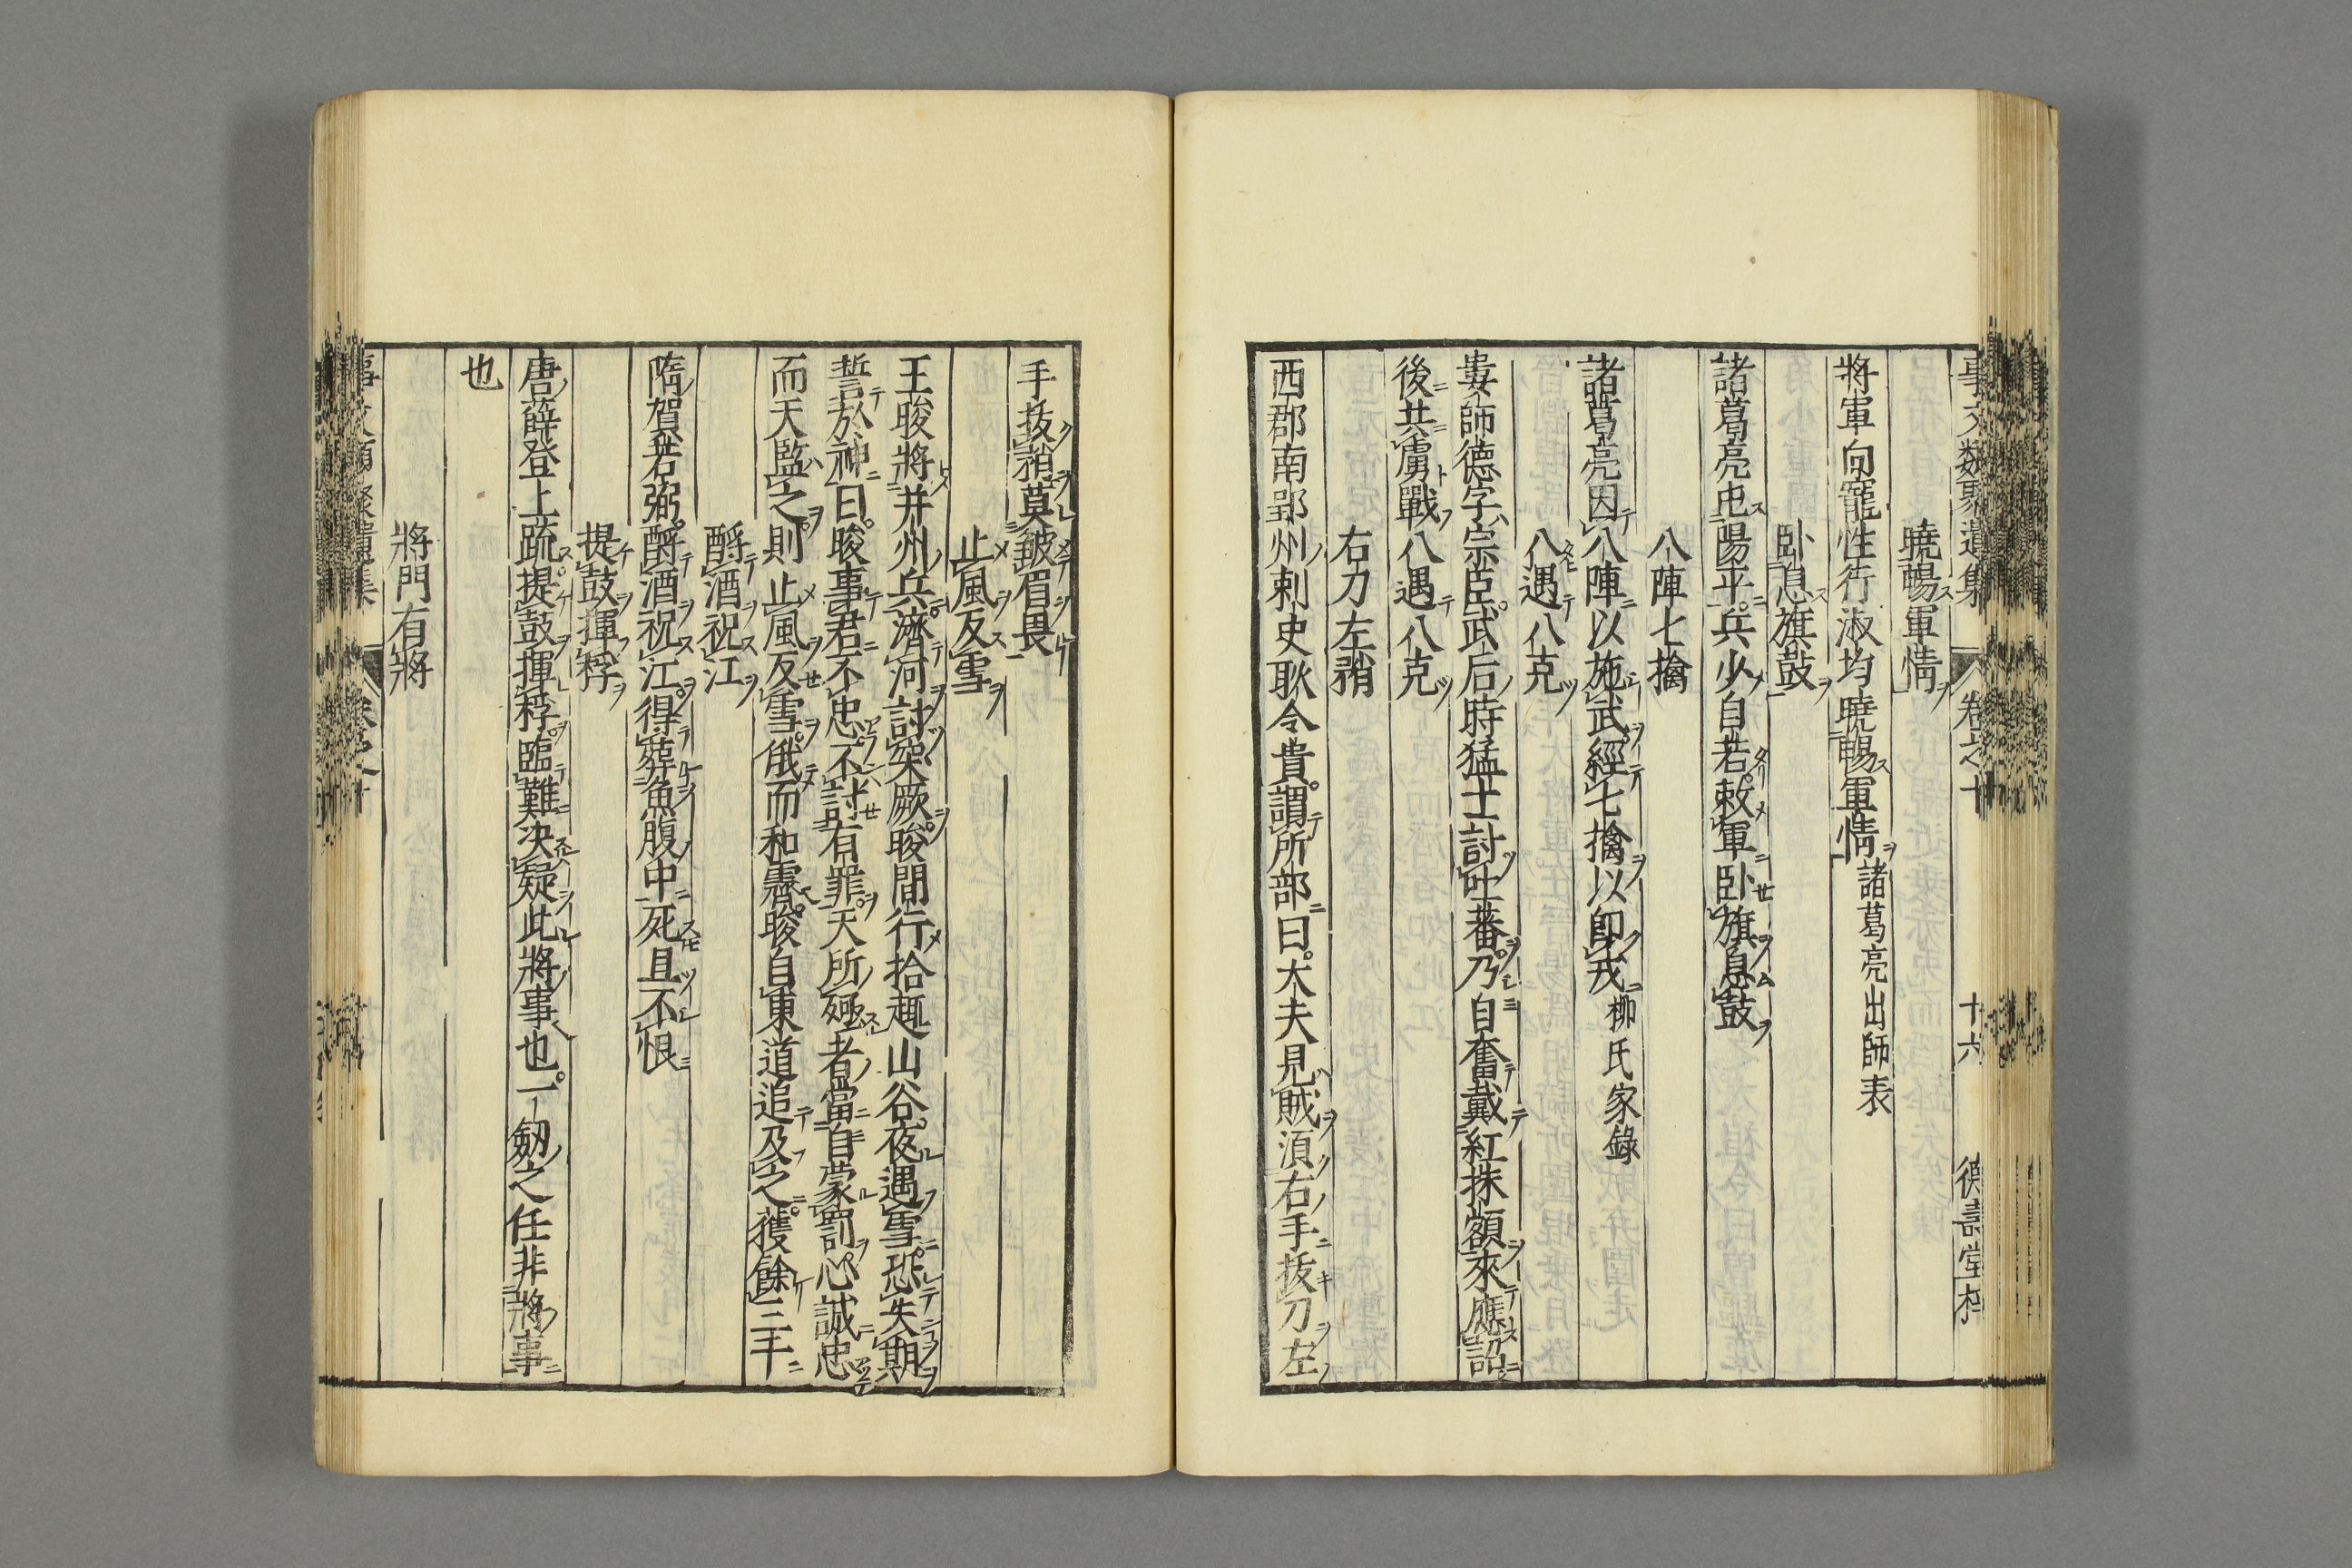 事文類聚遺集 卷之十 十六 德壽堂梓
曉暢軍情
將軍向寵性行淑均曉暢軍情諸葛亮出師表
卧息旗鼓
諸葛亮屯陽平兵少自若敕軍卧旗息鼓
八陣七擒
諸葛亮因八陣以施武經七擒以卽戎柳氏家錄
八遇八克
婁師德字宗臣武后時猛士討吐蕃乃自奮戴紅抹額來應詔
後共虜戰八遇八克
右刀左矟
西郡南郢州刺史耿令貴謂所部曰大夫見賊須右手拔刀左
手拔矟莫皺眉畏
止風反雪
王晙將并州兵濟河討突厥晙間行拾趣山谷夜遇雪恐失期
誓於神曰晙事君不忠不討有罪天所殛者當自蒙罰心誠忠
而天監之則止風反雪俄而和霽晙自東道追及之獲餘三千
酹酒祝江
隋賀若弼酹酒祝江得葬魚腹中死且不恨
提鼓揮桴
唐薛登上疏提鼓揮桴臨難決疑此將事也一劒之任非將事
也
將門有將